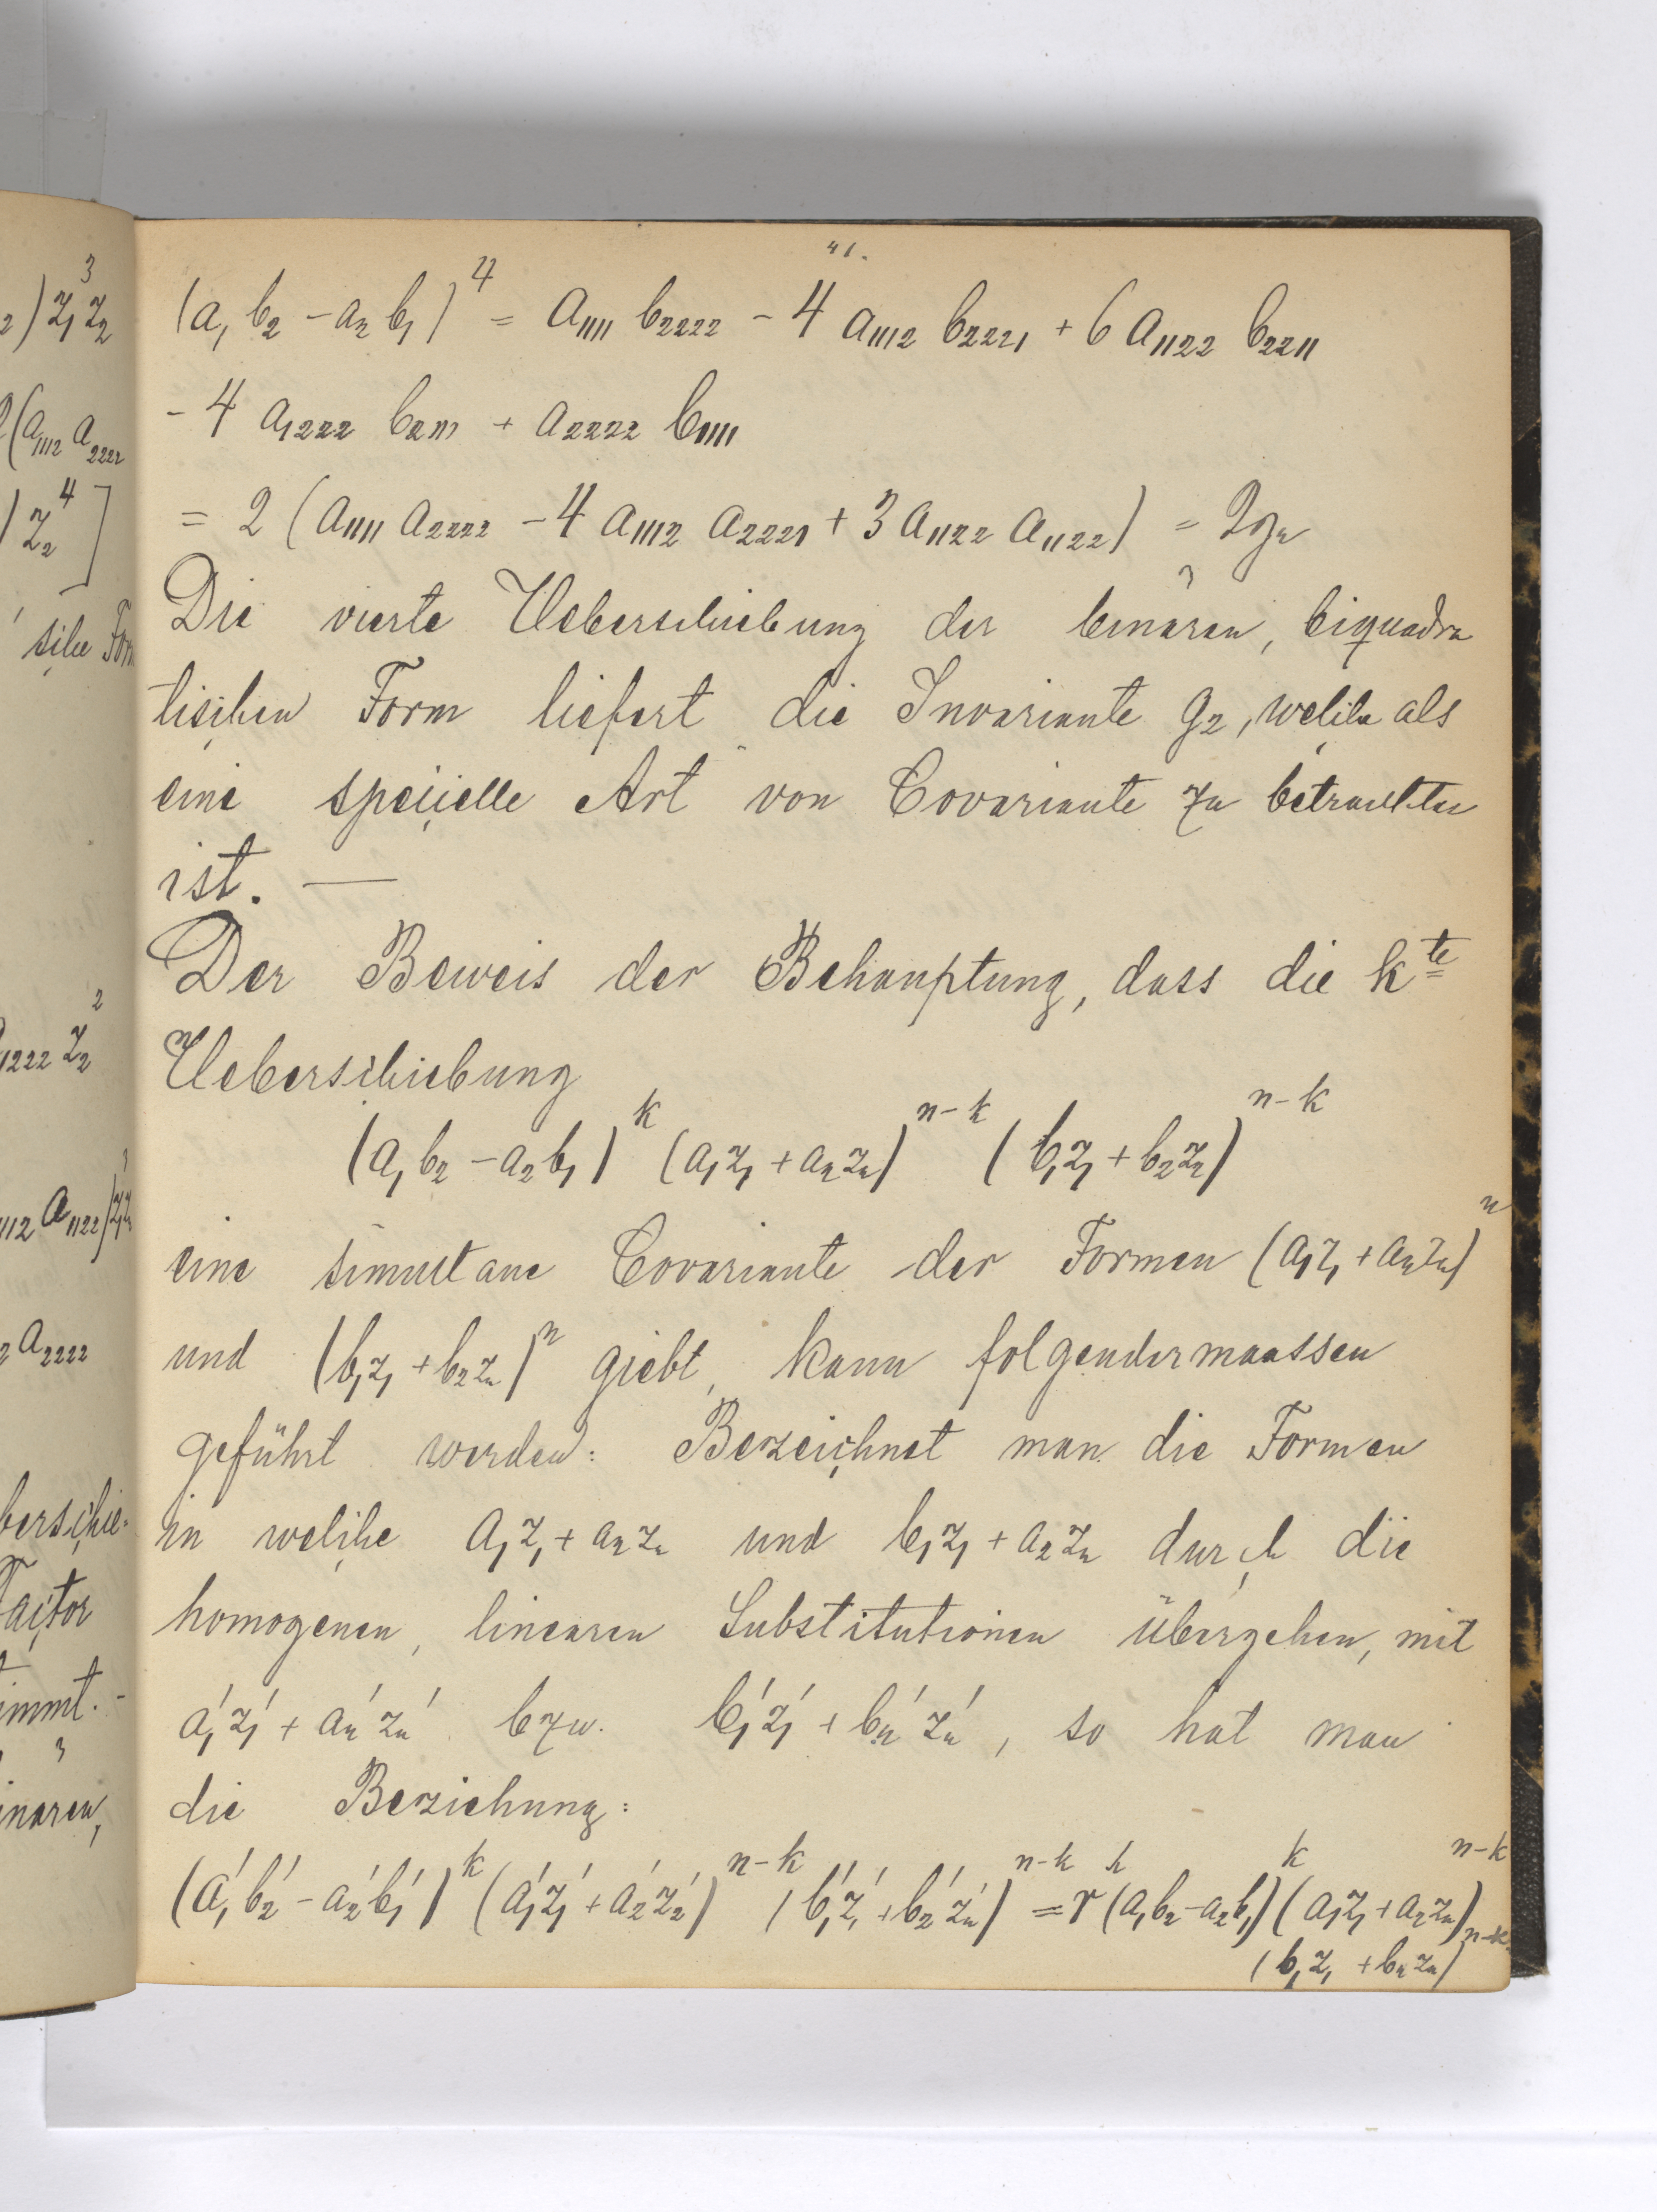 41.
(a₁ b₂ - a₂ b₁)⁴ = a₁₁₁₁ b₂₂₂₂ - 4 a₁₁₁₂ b₂₂₂₁ + 6 a₁₁₂₂ b₂₂₁₁
- 4 a₁₂₂₂ b₂₁₁₁ + a₂₂₂₂ b₁₁₁₁
= 2 (a₁₁₁₁ a₂₂₂₂ - 4 a₁₁₁₂ a₂₂₂₁ + 3 a₁₁₂₂ a₁₁₂₂) = 2g₂
Die vierte Ueberschiebung der binären, biquadra
tischen Form liefert die Invariante g₂, welche als
eine specielle Art von Covariante zu betrachten
ist. —
Der Beweis der Behauptung, dass die kte
Ueberschiebung
(a₁ b₂ - a₂ b₁)ᵏ (a₁z₁ + a₂z₂)ⁿ⁻ᵏ (b₁z₁ + b₂z₂)ⁿ⁻ᵏ
eine simultane Covariante der Formen (a₁z₁ + a₂z₂)ⁿ
und (b₁z₁ + b₂z₂)ⁿ giebt, kann folgendermaassen
geführt werden: Bezeichnet man die Formen
in welche a₁z₁ + a₂z₂ und b₁z₁ + a₂z₂ durch die
homogenen, linearen Substitutionen übergehen, mit
a₁'z₁' + a₂'z₂' bzw. b₁'z₁' + b₂'z₂', so hat man
die Beziehung:
(a₁'b₂' - a₂'b₁')ᵏ (a₁'z₁' + a₂'z₂')ⁿ⁻ᵏ (b₁'z₁' + b₂'z₂')ⁿ⁻ᵏ = rᵏ (a₁b₂ - a₂b₁)ᵏ (a₁z₁ + a₂z₂)ⁿ⁻ᵏ
(b₁z₁ + b₂z₂)ⁿ⁻ᵏ